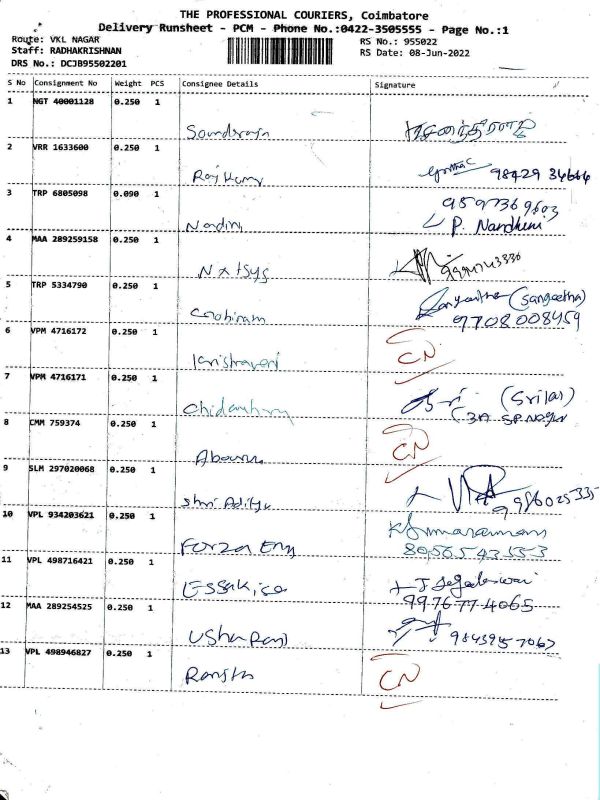 THE PROFESSIONAL COURIERS, Coimbatore
Delivery Runsheet - PCM - Phone No.:0422-3505555 - Page No.:1
Route: VKL NAGAR RS No.: 955022
Staff: RADHAKRISHNAN RS Date: 08-Jun-2022
DRS No.: DCJB95502201
S No Consignment No Weight PCS Consignee Details Signature
1 NGT 40001128 0.250 1
2 VRR 1633600 0.250 1
Rajkumar 98429 34664
3 TRP 6805098 0.090 1
Nadini P. Nandhini
4 MAA 289259158 0.250 1
Nxtsys
5 TRP 5334790 0.250 1
(Sangeetha)
9708008459
6 VPM 4716172 0.250 1
CN
7 VPM 4716171 0.250 1
(Srilai)
8 CMM 759374 0.250 1
CN
9 SLM 297020068 0.250 1
Shri Aditya
10 VPL 934203621 0.250 1
Forza Eng 8056543553
11 VPL 498716421 0.250 1
J Jegadeswari
99767 74065
12 MAA 289254525 0.250 1
Usha Rani 9843957067
13 VPL 498946827 0.250 1
CN